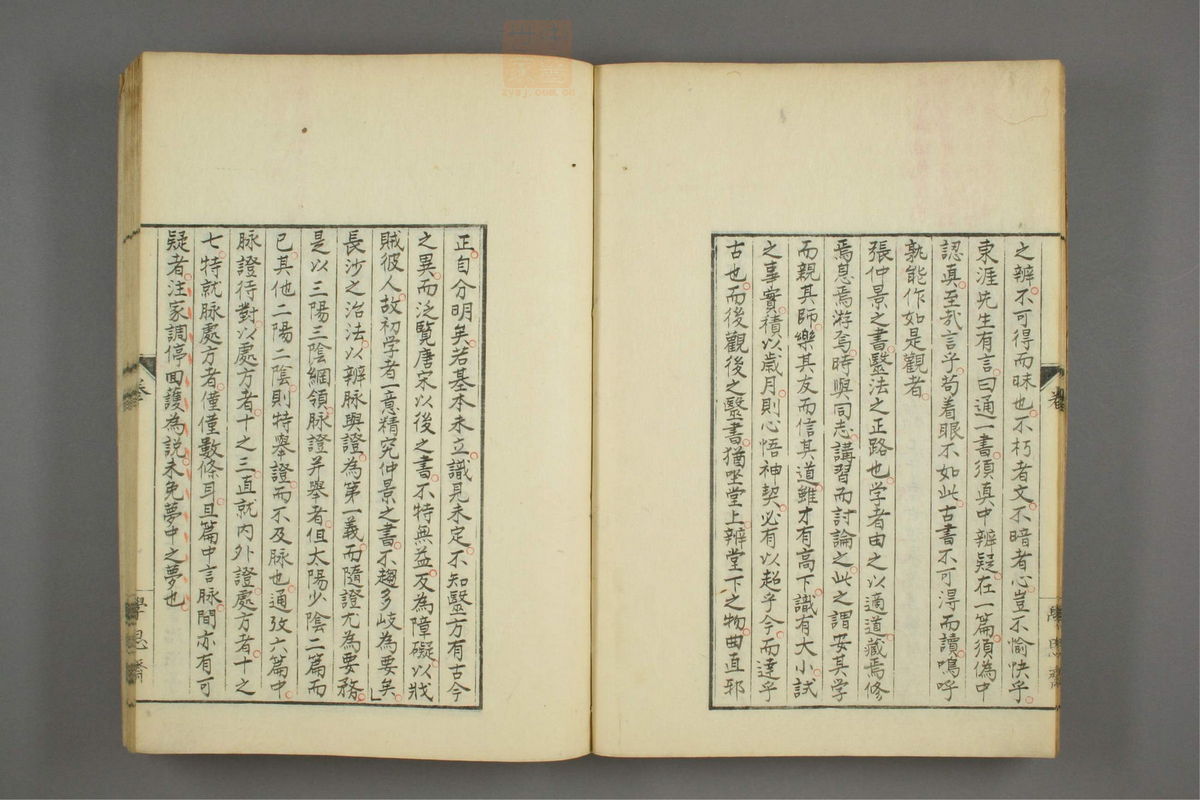 之辨不可得而昧也不朽者文不暗者心豈不愉快乎
東涯先生有言曰通一書須真中辨疑在一篇須偽中
認真至哉言乎苟着眼不如此古書不可得而讀嗚呼
孰能作如是觀者
張仲景之書毉法之正路也学者由之以適道藏焉修
焉息焉游焉時與同志講習而討論之此之謂安其学
而親其師樂其友而信其道雖才有高下識有大小試
之事實積以歲月則心悟神契必有以超乎今而達乎
古也而後觀後之毉書猶坐堂上辨堂下之物曲直邪
學思齋
正自分明矣若基本未立識見未定不知毉方有古今
之異而泛覽唐宋以後之書不特無益反為障礙以戕
賊彼人故初学者一意精究仲景之書不趨多岐為要矣
長沙之治法以辨脉與證為第一義而隨證尤為要務
是以三陽三陰綱領脉證并舉者但太陽少陰二篇而
已其他二陽二陰則特舉證而不及脉也通攷六篇中
脉證待對以處方者十之三直就内外證處方者十之
七特就脉處方者僅僅數條耳且篇中言脉間亦有可
疑者注家調停回護為説未免夢中之夢也
卷
學思齋
zysj.com.cn